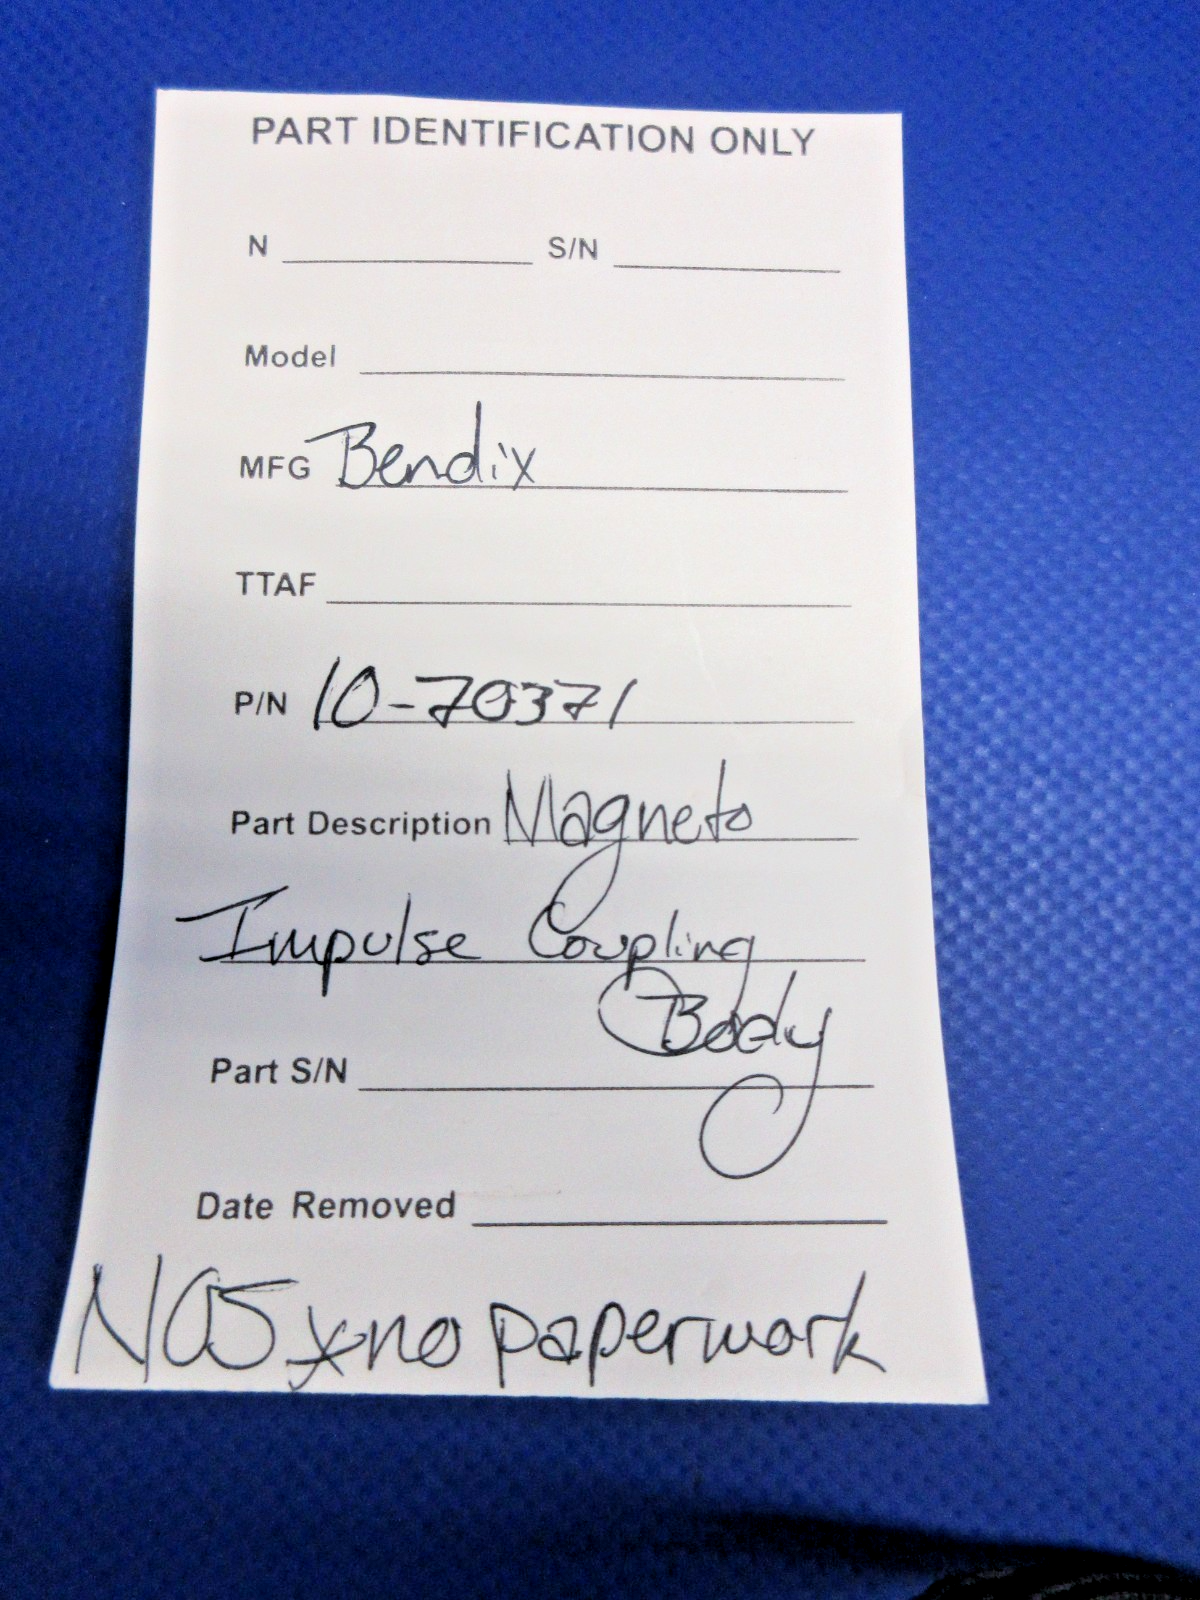 PART IDENTIFICATION ONLY
N S/N
Model
MFG Bendix
TTAF
P/N 10-70371
Part Description Magneto
Impulse Coupling
Body
Part S/N
Date Removed
NOS *no paperwork